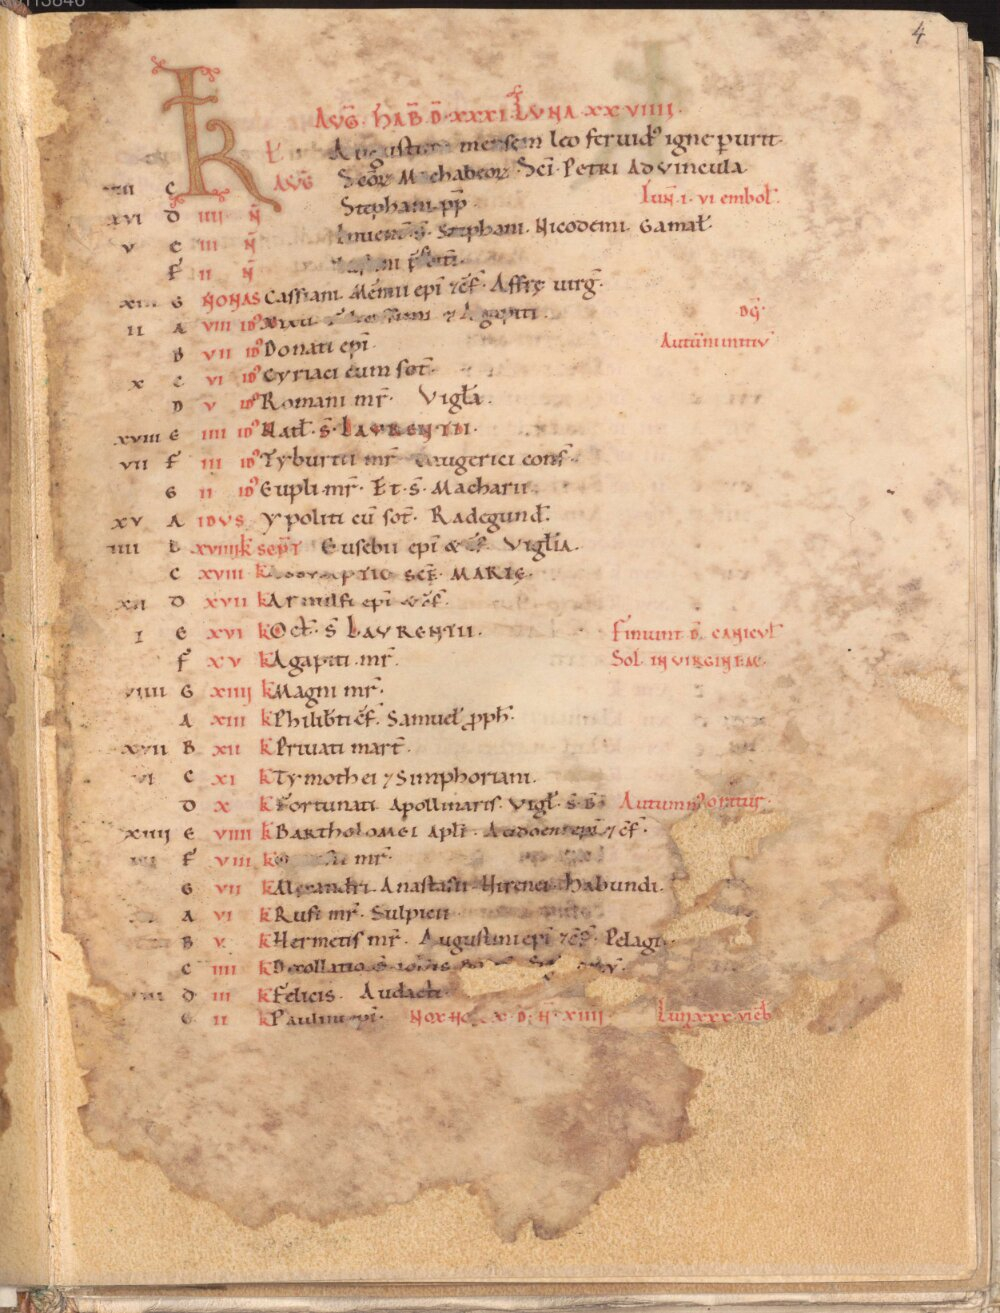 4
AVḠ. HAB̄. D̄. XXXI. LVNA XXVIIII.
K Ł Augustum mensem leo feruid⁹ igne purit.
AVḠ Sc̄oꝝ Machabeoꝝ. Sc̄i. PETRI AD VINCVLA
C
XVI D IIII N̄ Stephani pp̄ Lun̄. I. VI embol̄.
V E III N̄ Inuent̄. S̄. Stephani. Nicodemi. Gamal̄.
F II N̄
G NONAS Cassiani. Memii ep̄i ⁊ c̄f. Affrę uirḡ.
II A VIII ID⁹ ⁊ Agapiti.
B VII ID⁹ Donati ep̄i. Autum̄ initiv̄
X C VI ID⁹ Cyriaci cum sot̄.
D V ID⁹ Romani mr̄. Vigl̄a.
XVIII E IIII ID⁹ Natł. S̄. LAVRENTII.
VII F III ID⁹ Tyburtii mr̄. Gaugerici conf̄.
G II ID⁹ Eupli mr̄. Et. S̄. Macharii.
XV A IDVS Ypoliti cū sot̄. Radegund̄.
IIII B XVIIII k̄ SEPT̄ Eusebii ep̄i & c̄f. Vigl̄ia.
C XVIII k̄ SCĘ. MARIĘ.
XII D XVII k̄ Arnulfi ep̄i & c̄f.
I E XVI k̄ Oct̄. S̄. LAVRENTII. Finiunt D̄. CANICVL̄
F XV k̄ Agapiti. mr̄. Sol. IN VIRGINEM.
VIIII G XIIII k̄ Magni mr̄.
A XIII k̄ Philib̄ti c̄f. Samuel̄ ꝓph̄.
XVII B XII k̄ Priuati mart̄.
VI C XI k̄ Tymothei ⁊ Simphoriani.
D X k̄ Fortunati. Apollinaris. Vigl̄. S̄. B̄. Autumn⁹ oritur.
XIIII E VIIII k̄ BARTHOLOMEI apl̄i. Audoeni ep̄i ⁊ c̄f.
F VIII k̄ mr̄.
G VII k̄ Alexandri. Anastasii. Hirenei. Habundi.
A VI k̄ Rufi mr̄. Sulpicii
B V. k̄ Hermetis mr̄. Augustini ep̄i ⁊ c̄f. Pelagi
C IIII k̄ Decollatio S̄.
D III k̄ Felicis. Audacti.
E II k̄ Paulini ep̄i. NOX HO X. D̄. H̄. XIIII. Lun̄ XXX